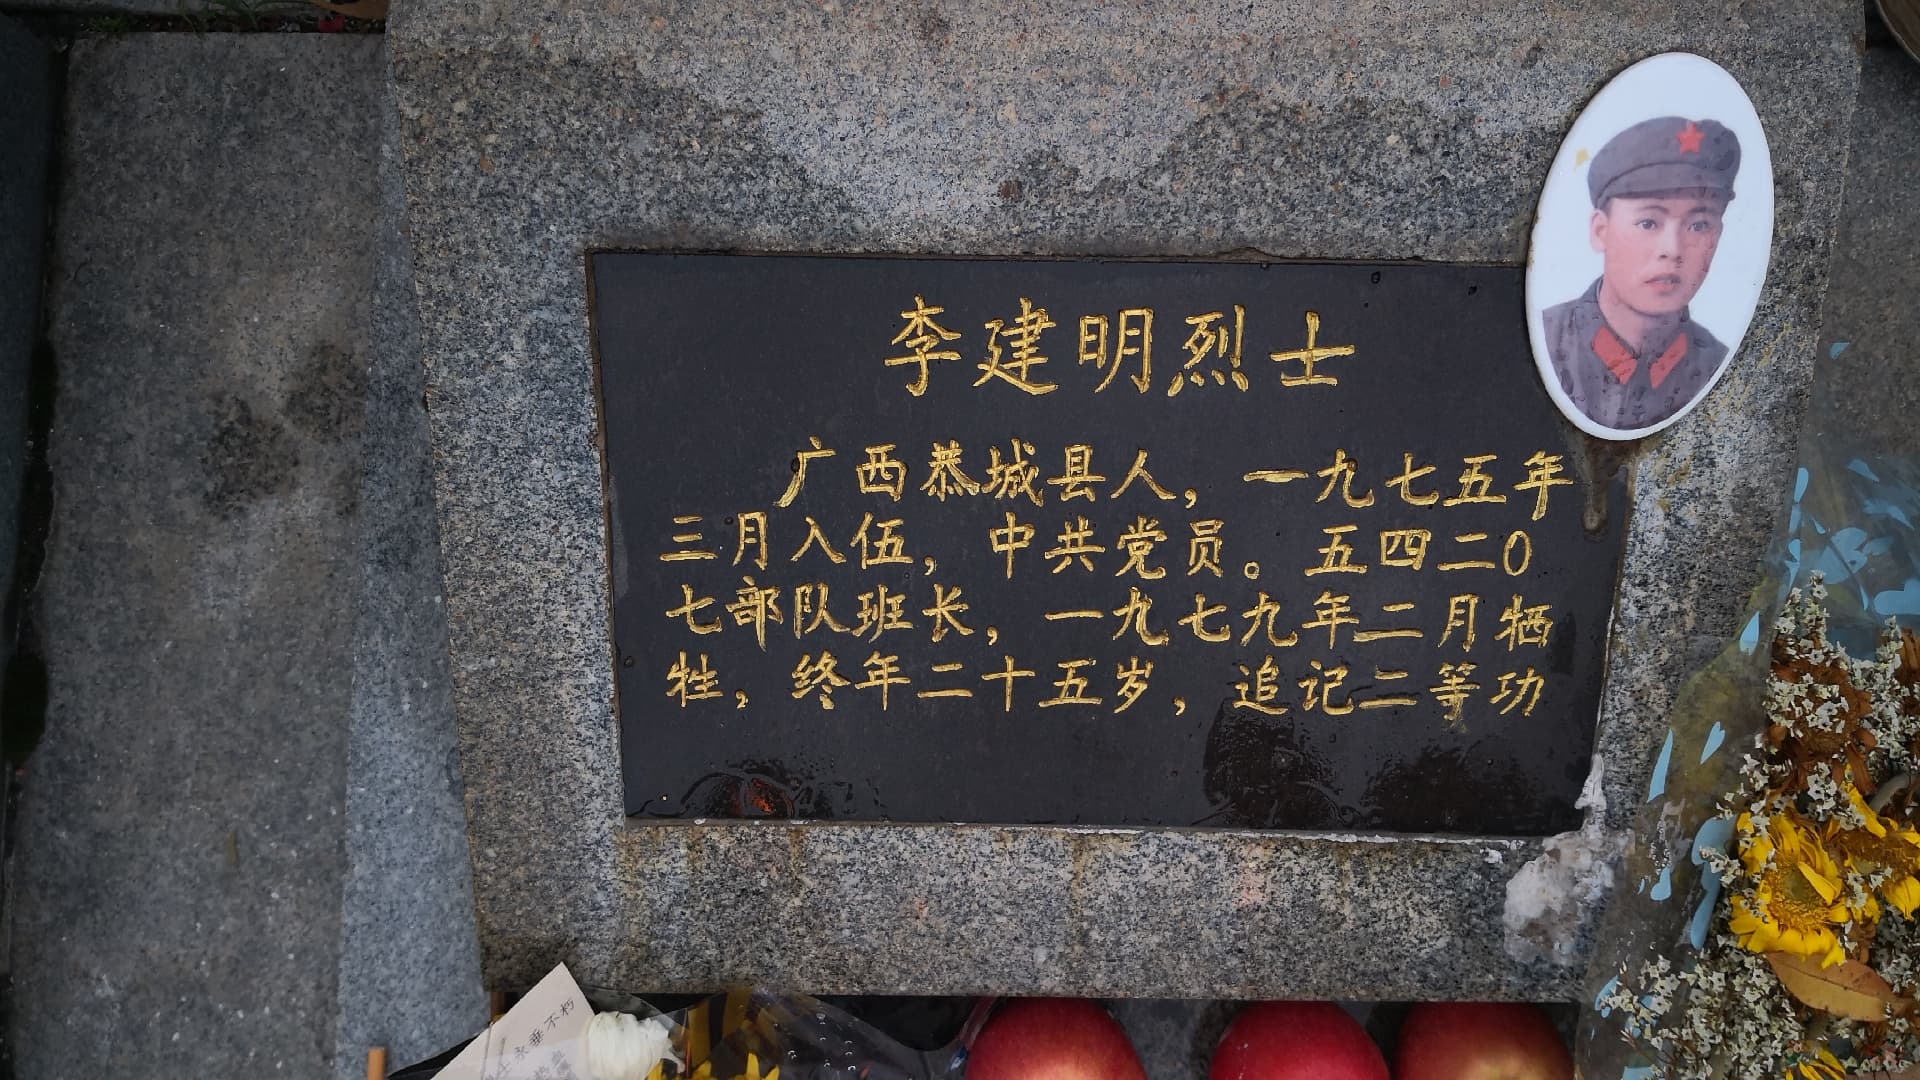 李建明烈士
广西恭城县人，一九七五年
三月入伍，中共党员。五四二0
七部队班长，一九七九年二月牺
牲，终年二十五岁，追记二等功
永垂不朽